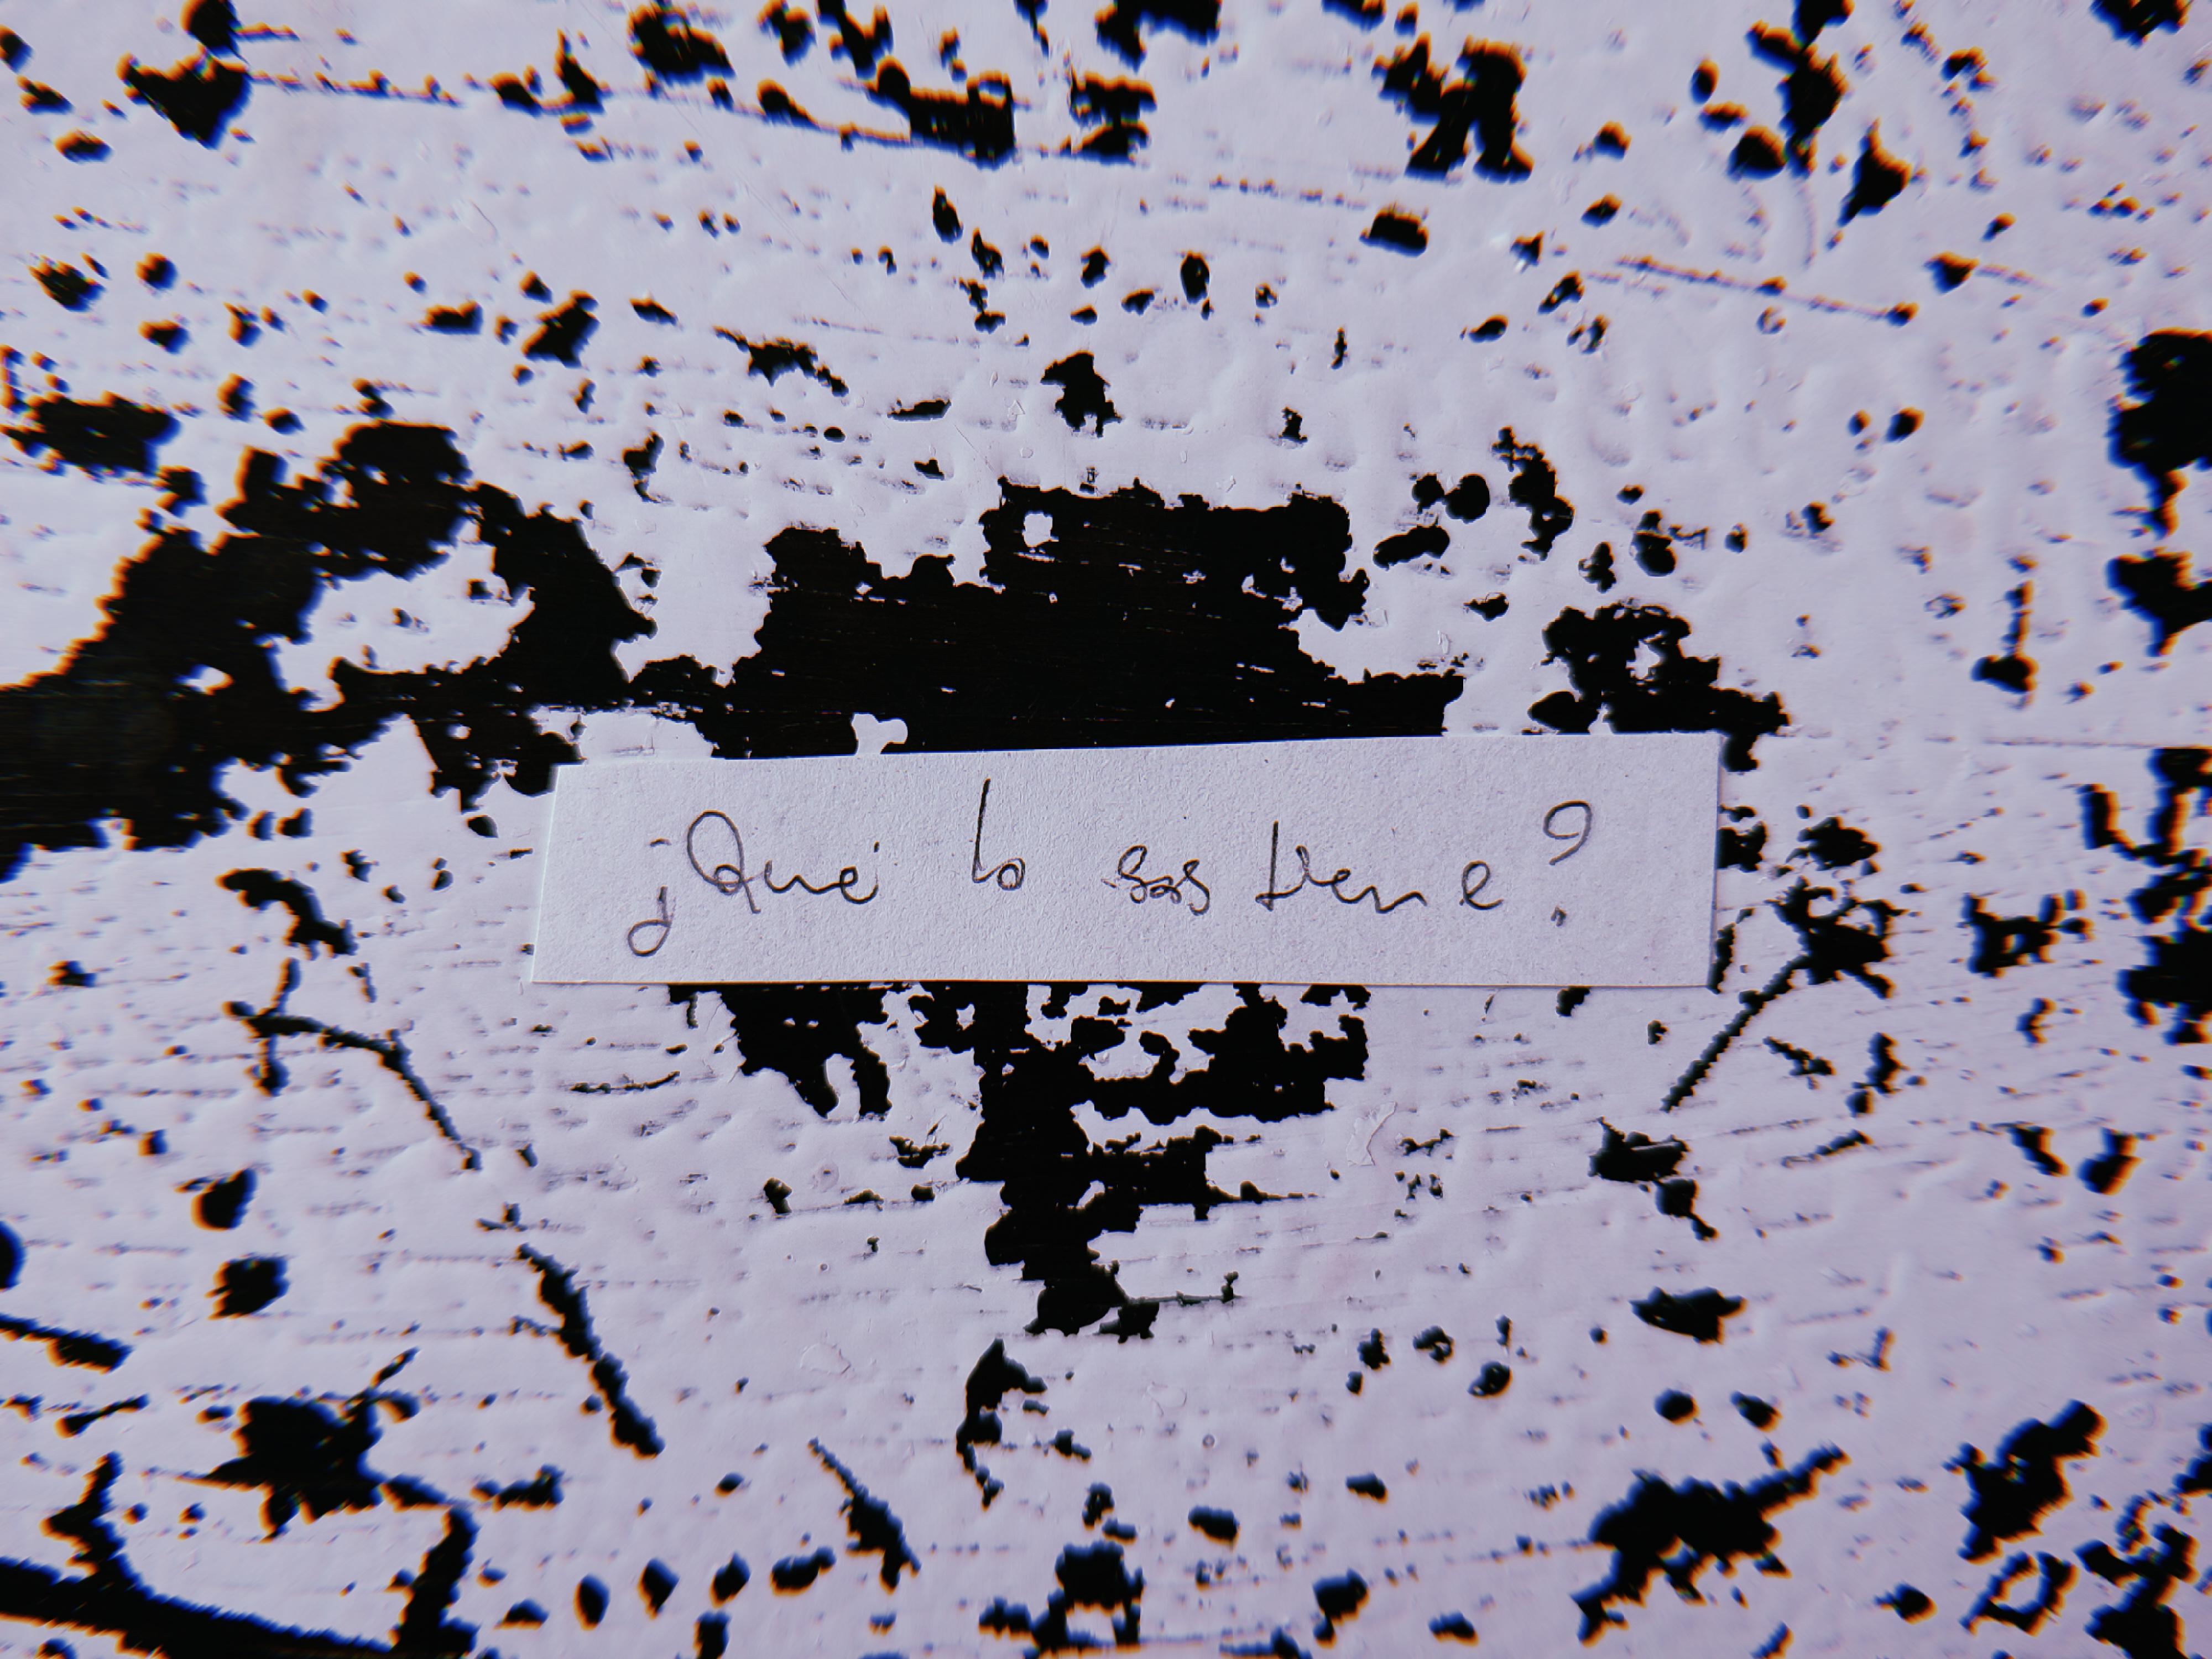 ¿Qué lo sostiene?